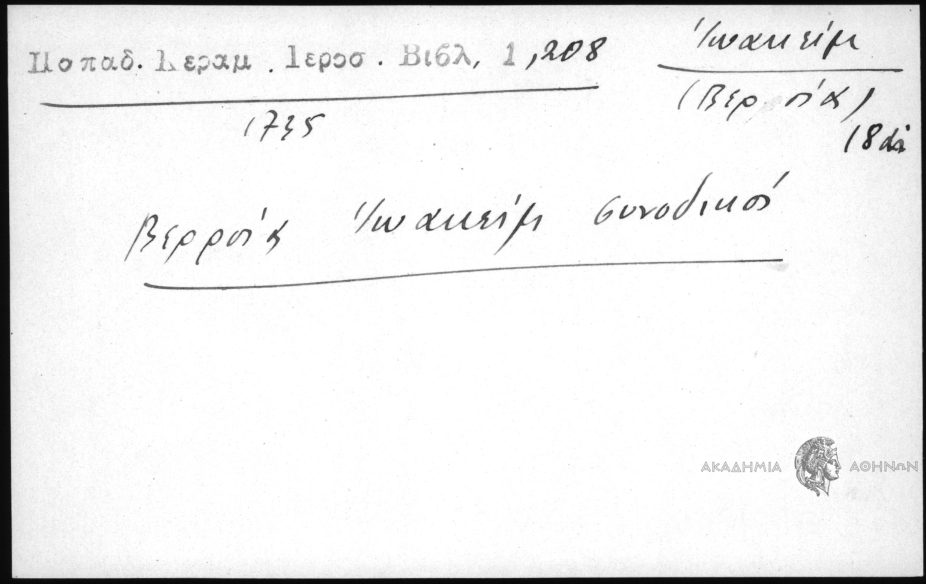 Παπαδ. Κεραμ. Ιεροσ. Βιβλ, 1,208
Ἰωακείμ
(Βερροίας)
18 αἰ
1735
Βερροίας Ἰωακείμ συνοδικοί
ΑΚΑΔΗΜΙΑ ΑΘΗΝΩΝ